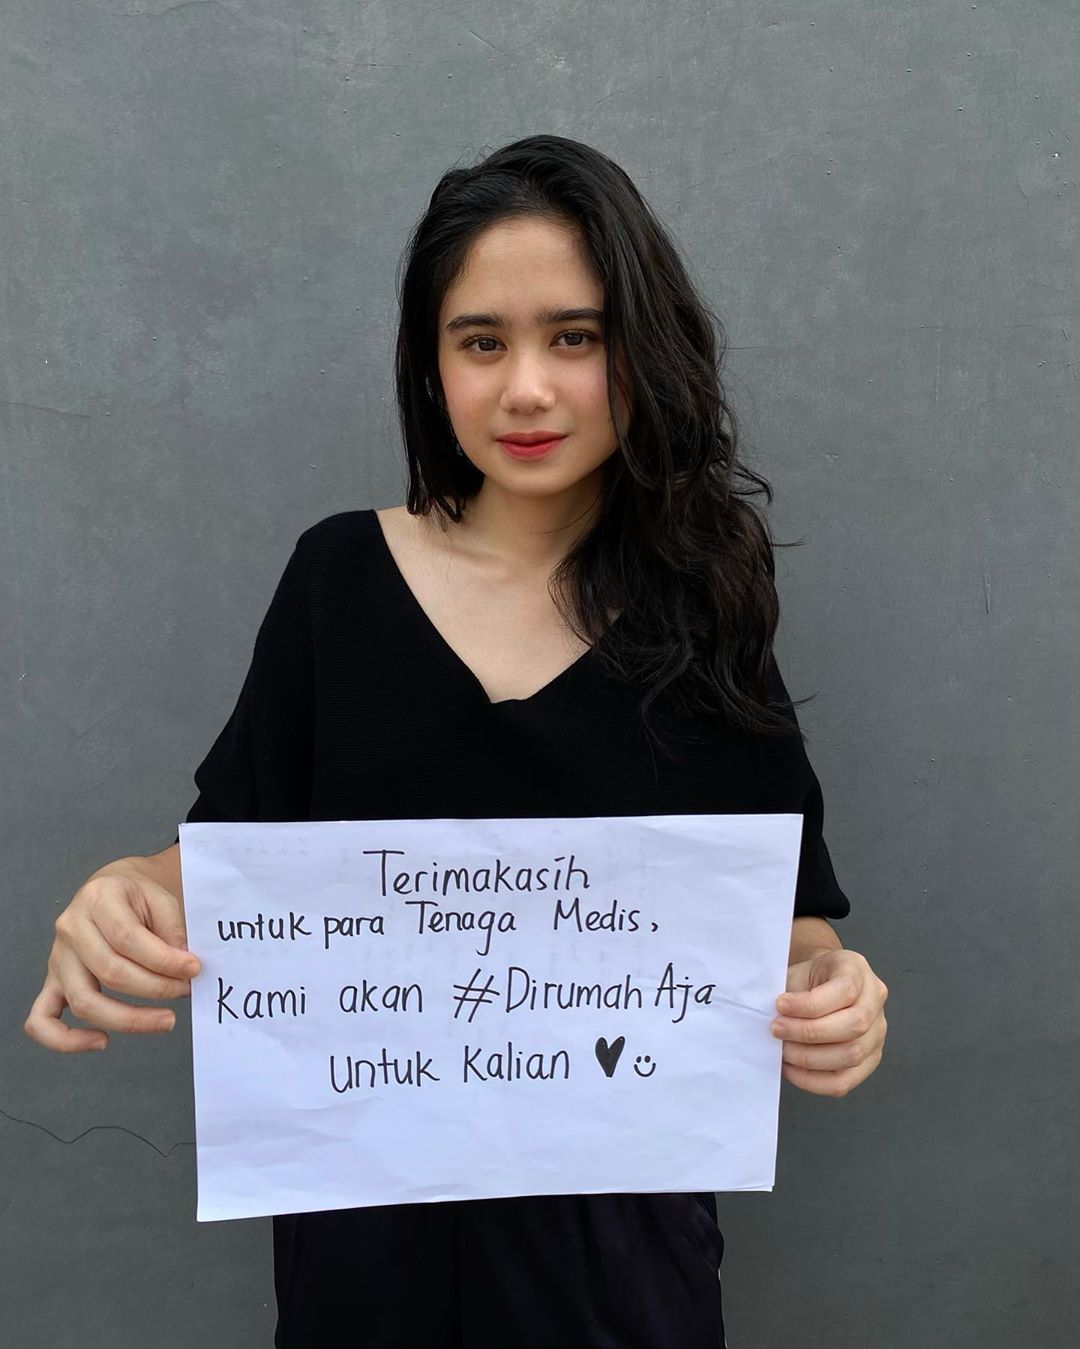 Terimakasih
untuk para Tenaga Medis,
Kami akan #Dirumah Aja
Untuk Kalian ♥ :)